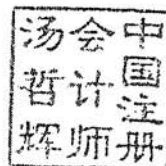 中国注册
会计师
汤哲辉